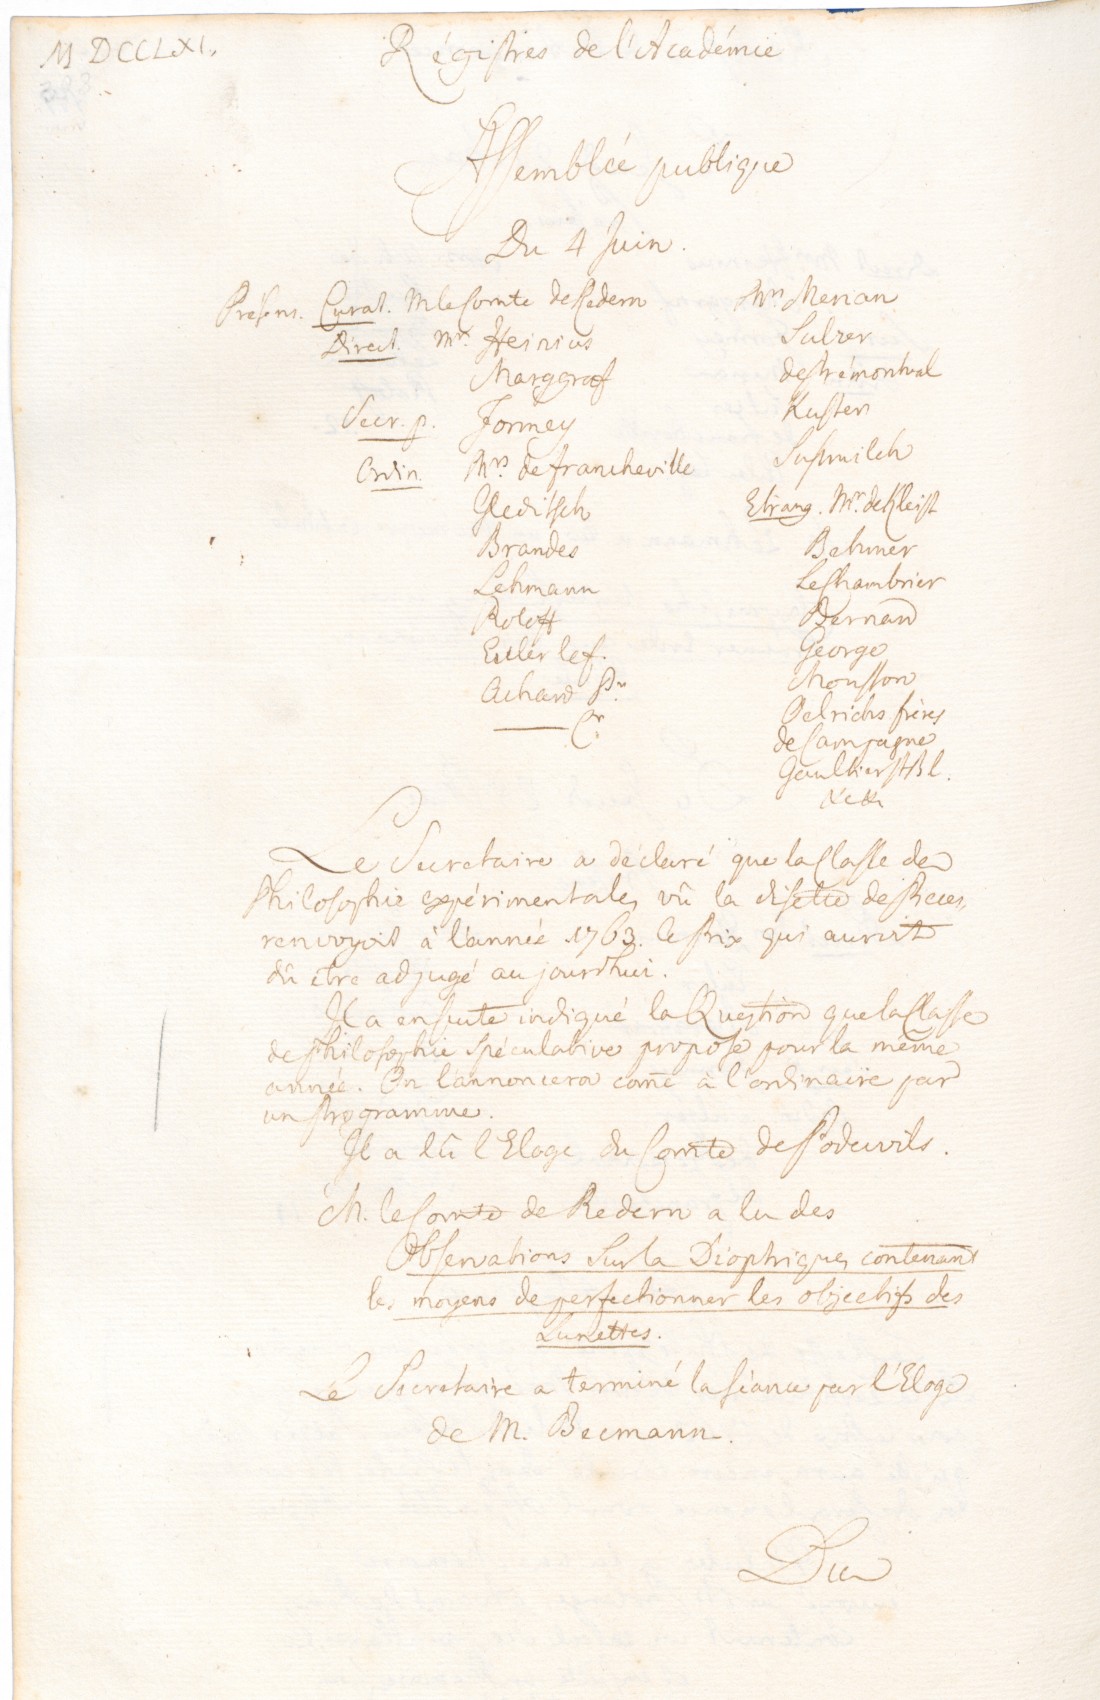 MDCCLXI.
Régistres de l'Académie
Assemblée publique
Du 4 Juin.
Présens. Curat. M le Comte de Redern
Direct. Mrs. Heinius
Marggraf
Secr. p. Formey
Ordin. Mrs. de Francheville
Gleditsch
Brandes
Lehmann
Roloff
Euler le f.
Achard Pr.
——— Cr.
Mrs Merian
Sulzer
de Prémontval
Kuster
Susmilch
Etrang. Mr. de Kleist
Behmer
Le Chambrier
Bernard
George
Mousson
Oelrichs frères
de Campagne
Gaultier St Bl.
&c &c
Le Secretaire a déclaré que la Classe de
Philosophie expérimentale, vû la disette de Pieces,
renvoyoit à l'année 1763. le Prix qui auroit
dû etre adjugé aujourd'hui.
Il a ensuite indiqué la Question que la Classe
de philosophie spéculative propose pour la méme
année. On l'annoncera come à l'ordinaire par
un Programme.
Il a lû l'Eloge du Comte de Podewils.
M. le Comte de Redern a lu des
Observations sur la Dioptrique, contenant
les moyens de perfectionner les objectifs des
Lunettes.
Le Secretaire a terminé la séance par l'Eloge
de M. Becmann.
Du